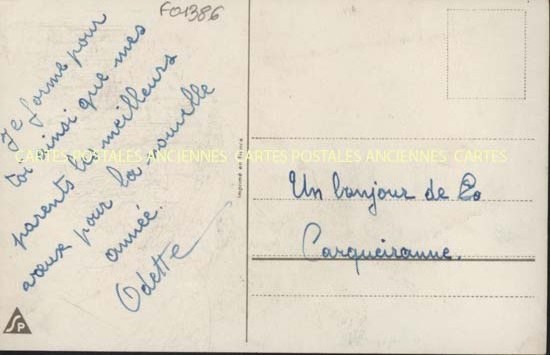 F01386
Je forme pour
toi ainsi que mes
parents les meilleurs
vœux pour la nouvelle
année.
Odette
CARTES POSTALES ANCIENNES CARTES POSTALES ANCIENNES CARTES
Imprimé en France
Un bonjour de
Carqueiranne.
SP